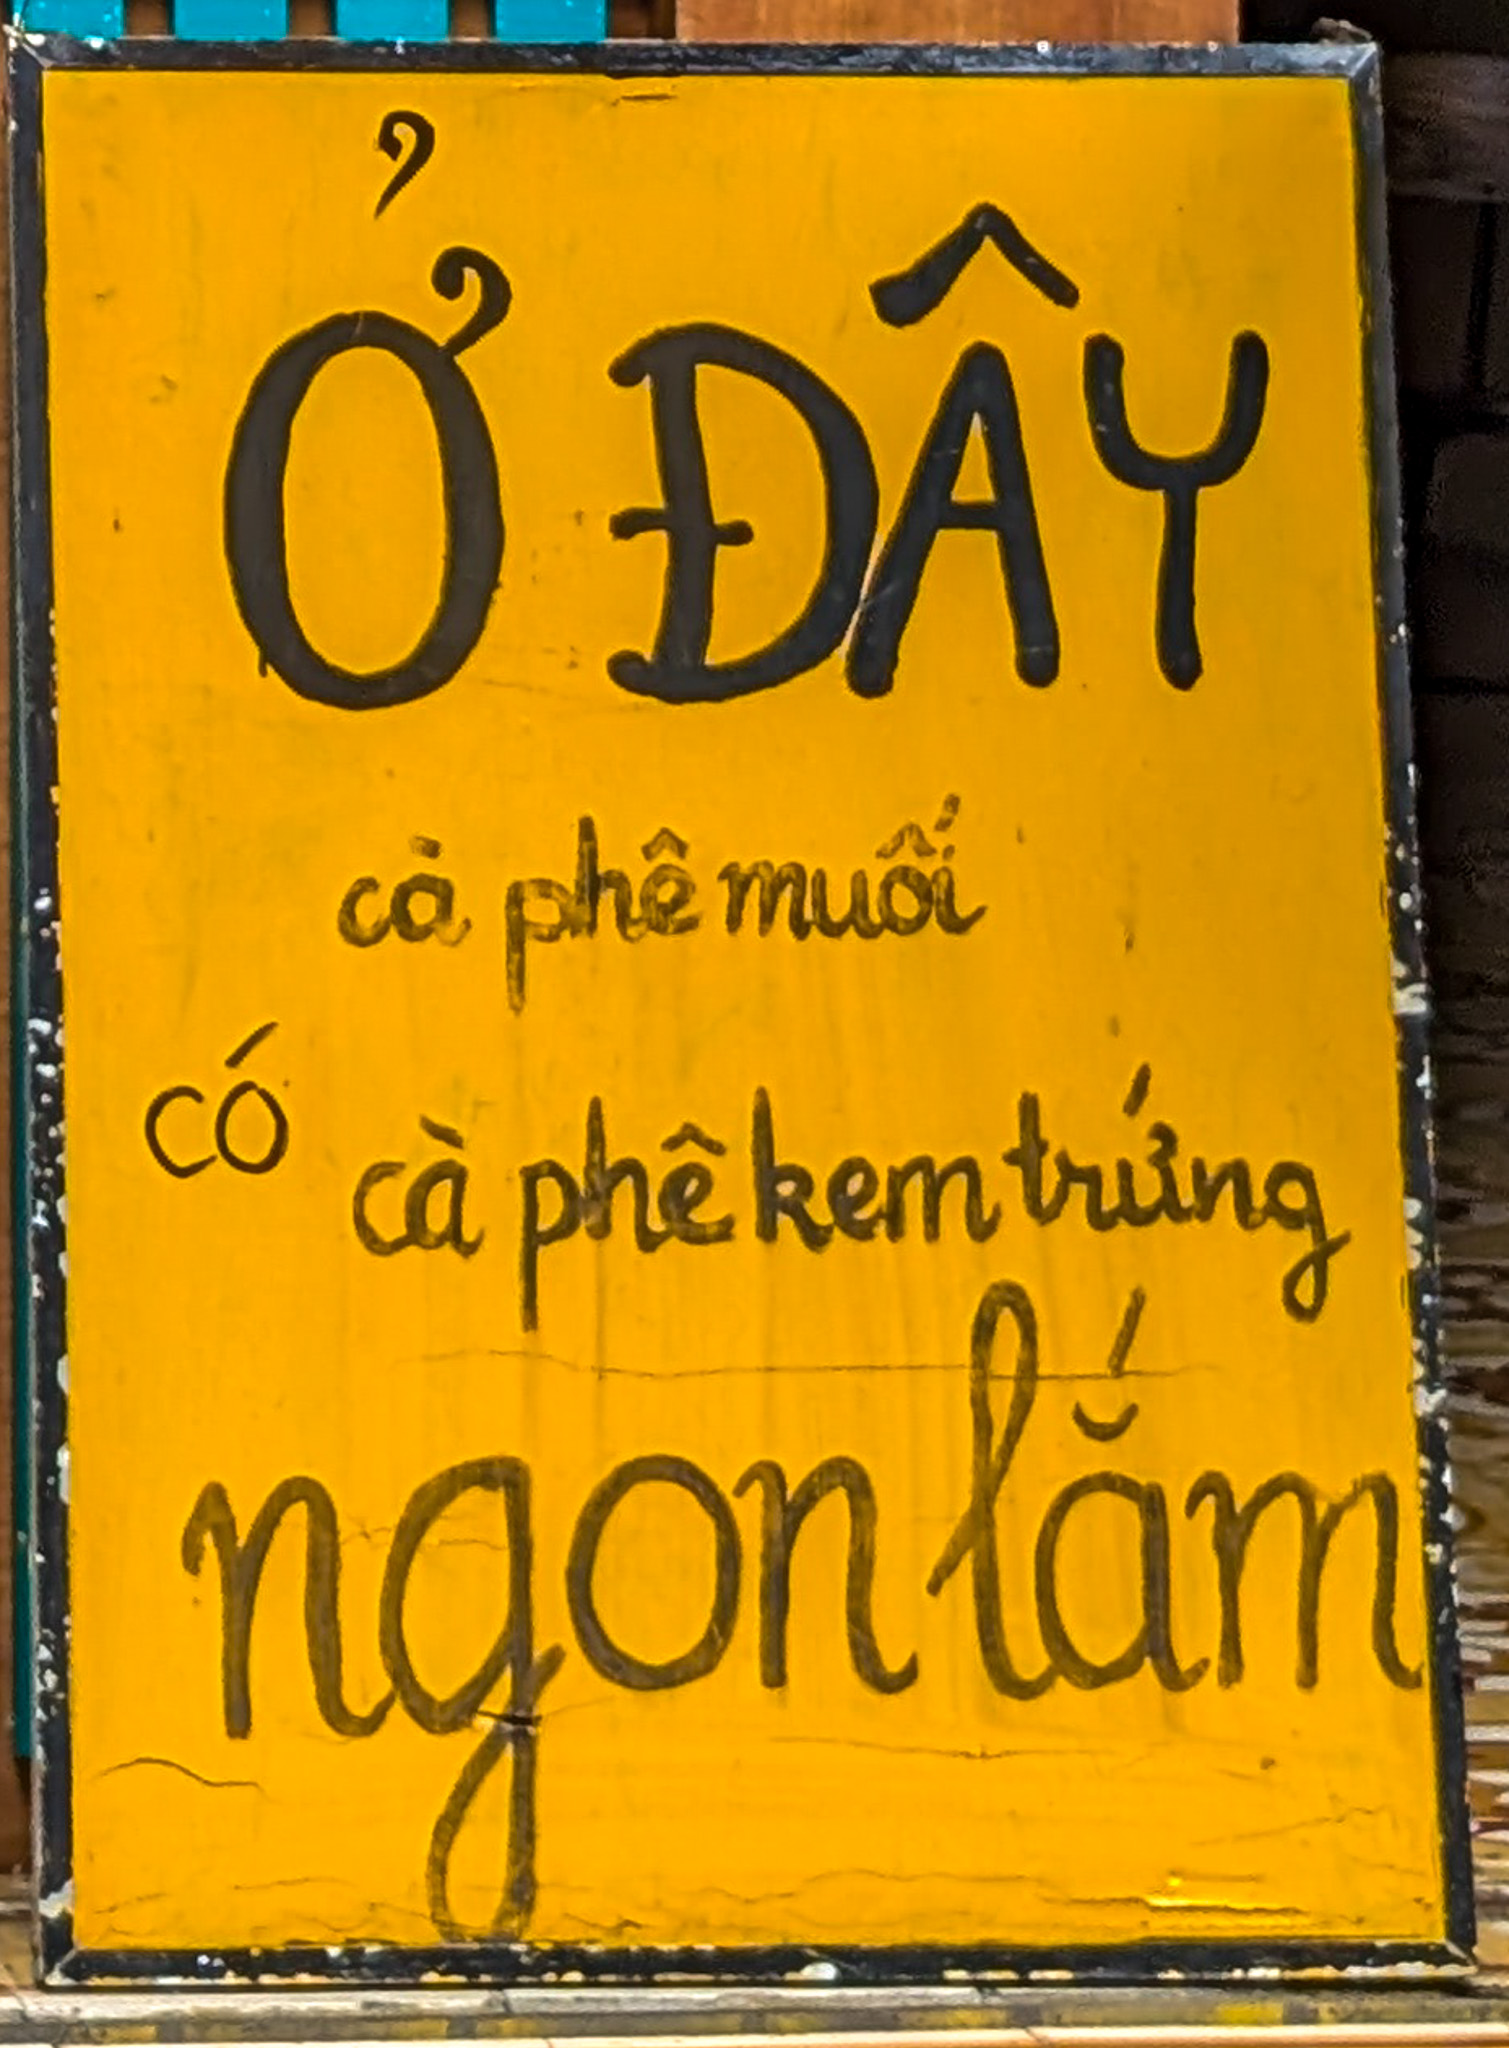 Ở ĐÂY
cà phê muối
có
cà phê kem trứng
ngon lắm